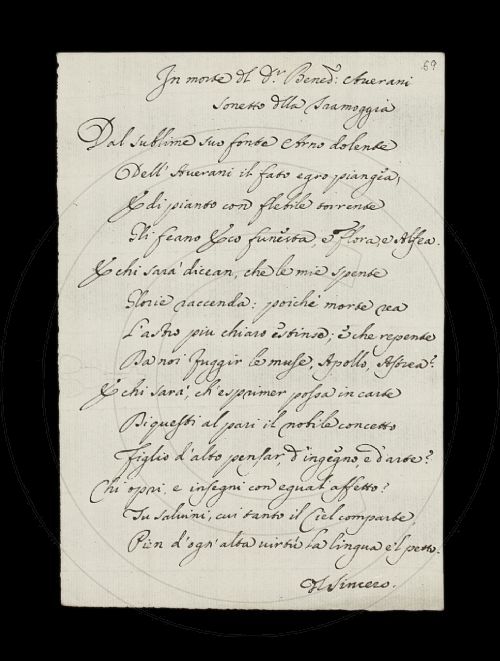 69
In morte dl Dr. Bened: Averani
Sonetto dlla Scamoggia
Dal sublime suo fonte Arno dolente
Dell' Averani il fato egro piangea,
E di pianto con flebile torrente
Gli feano Eco funesta, e Flora, e Alfea.
E chi sarà dicean, che le mie spente
Glorie raccenda: poiché morte rea
L'astro piu chiaro estinse; e che repente
Da noi fuggir le muse, Apollo, Astrea?
E chi sarà, ch'esprimer possa in carte
Di questi al pari il nobile concetto
Figlio d'alto pensar, d'ingegno, e d'arte?
Chi opri, e insegni con egual affetto?
Tu salvini, cui tanto il Ciel comparte,
Pien d'ogn'alta virtù la lingua e'l petto.
Il Sincero.